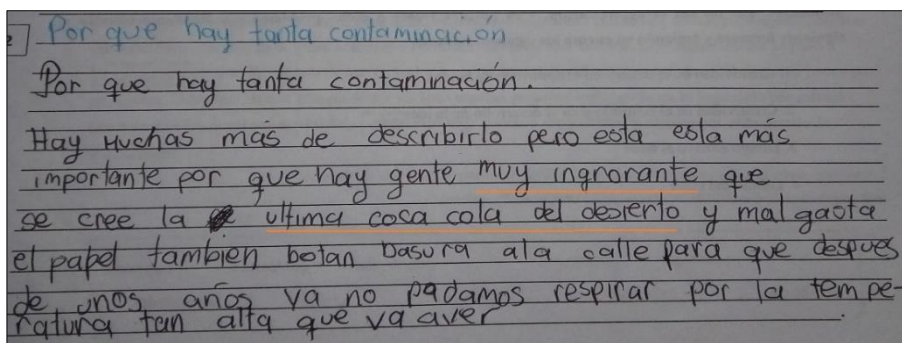 Por que hay tanta contaminación
Por que hay tanta contaminación.
Hay Muchas mas de describirlo pero esta esla más
importante por que hay gente muy ingnorante que
se cree la ultima coca cola del desierto y mal gasta
el papel tambien botan basura ala calle para que despues
de unos años ya no padamos respirar por la tempe-
ratura tan alta que va aver.